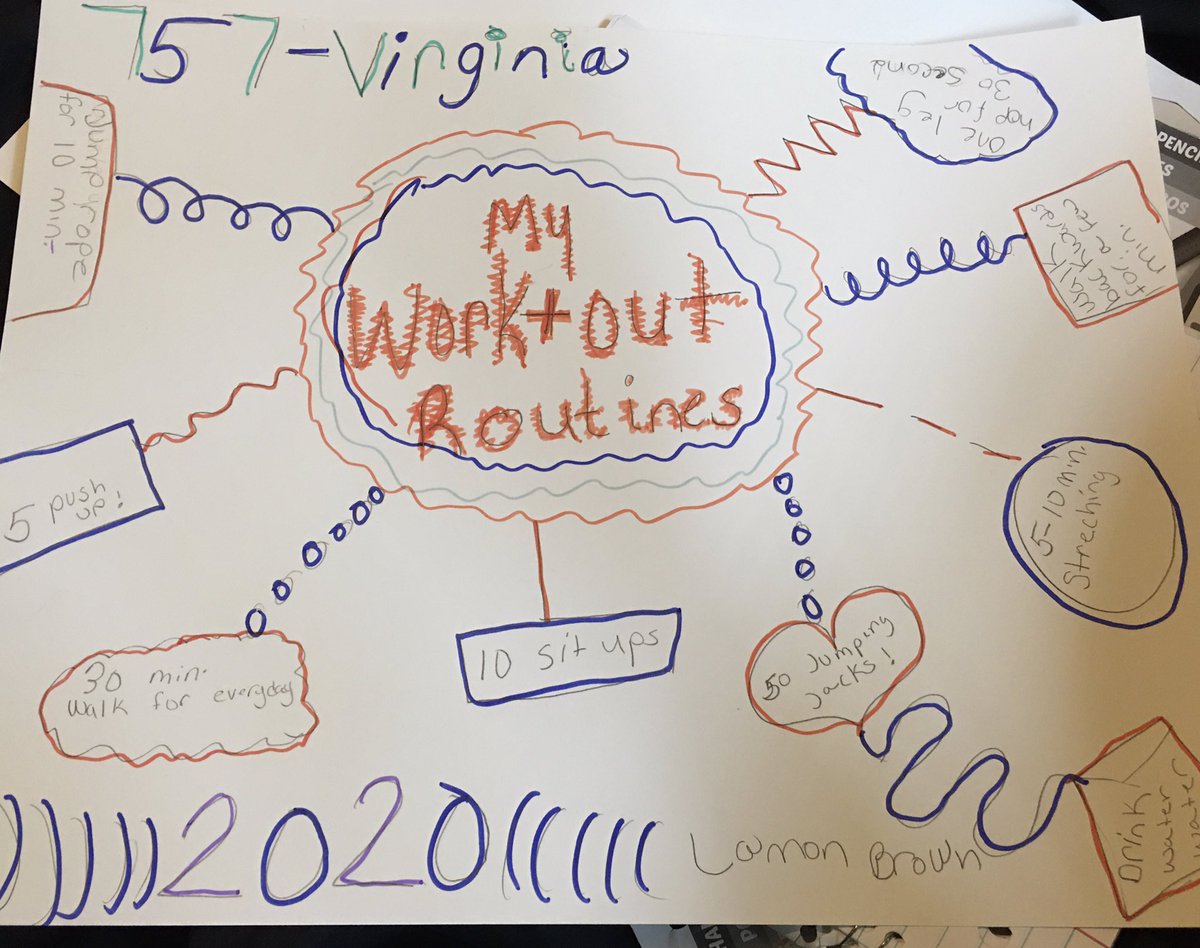 757-Virginia
My
Work+out
Routines
Jump rope
for 10 min-
one leg
hop for
30 second
walk
backwards
for a few
min.
5 push
up!
5-10 min.
Streching
30 min.
walk for everyday
10 sit ups
50 Jumping
Jacks!
Drink
water
water
2020
Lamon Brown
PENCI